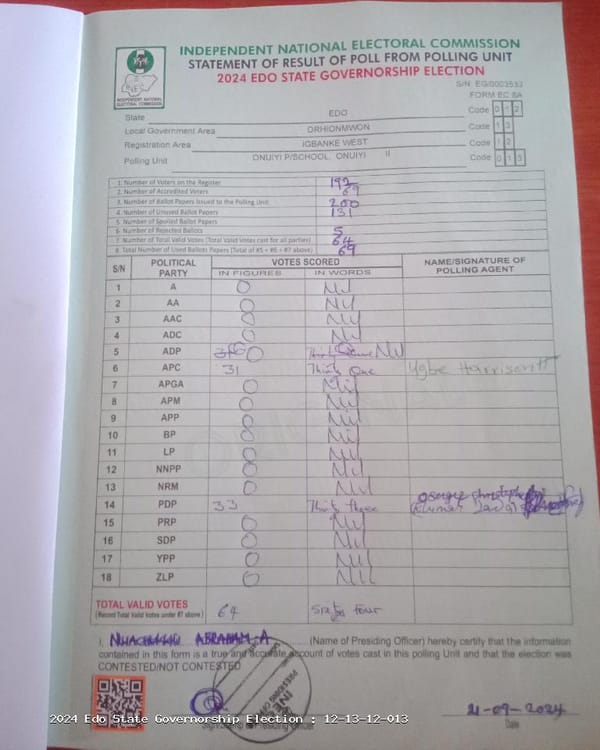 INDEPENDENT NATIONAL ELECTORAL COMMISSION
STATEMENT OF RESULT OF POLL FROM POLLING UNIT
2024 EDO STATE GOVERNORSHIP ELECTION
INDEPENDENT NATIONAL ELECTORAL COMMISSION
S/N: EG/0003533
FORM EC 8A
State EDO Code 0 1 2
Local Government Area ORHIONMWON Code 1 3
Registration Area IGBANKE WEST Code 1 2
Polling Unit ONUIYI P/SCHOOL, ONUIYI II Code 0 1 3
1. Number of Voters on the Register 192
2. Number of Accredited Voters 69
3. Number of Ballot Papers Issued to the Polling Unit 200
4. Number of Unused Ballot Papers 131
5. Number of Spoiled Ballot Papers
6. Number of Rejected Ballots 5
7. Number of Total Valid Votes (Total Valid Votes cast for all parties) 64
8. Total Number of Used Ballots Papers (Total of #5 + #6 + #7 above) 69
S/N POLITICAL PARTY VOTES SCORED NAME/SIGNATURE OF POLLING AGENT
IN FIGURES IN WORDS
1 A 0 Nil
2 AA 0 Nil
3 AAC 0 Nil
4 ADC 0 Nil
5 ADP 0 Nil
6 APC 31 Thirty One Ugbe Harrison
7 APGA 0 Nil
8 APM 0 Nil
9 APP 0 Nil
10 BP 0 Nil
11 LP 0 Nil
12 NNPP 0 Nil
13 NRM 0 Nil
14 PDP 33 Thirty three
15 PRP 0 Nil
16 SDP 0 Nil
17 YPP 0 Nil
18 ZLP 0 Nil
TOTAL VALID VOTES 64 Sixty four
(Record Total Valid Votes under #7 above)
I, ABRAHAM A (Name of Presiding Officer) hereby certify that the information
contained in this form is a true and accurate account of votes cast in this polling Unit and that the election was
CONTESTED/NOT CONTESTED
21-09-2024
Date
2024 Edo State Governorship Election : 12-13-12-013